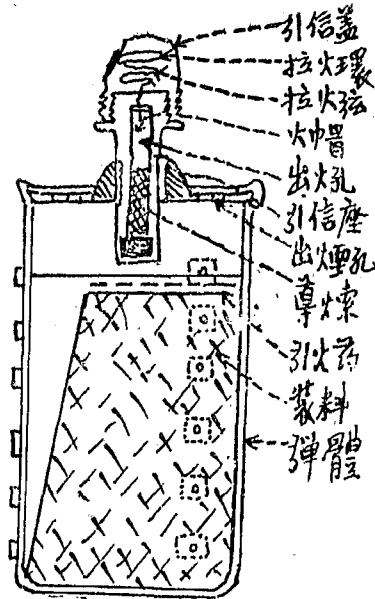 引信蓋
拉火環
拉火弦
火帽
出火孔
引信座
出煙孔
導火索
引火药
裝料
彈體